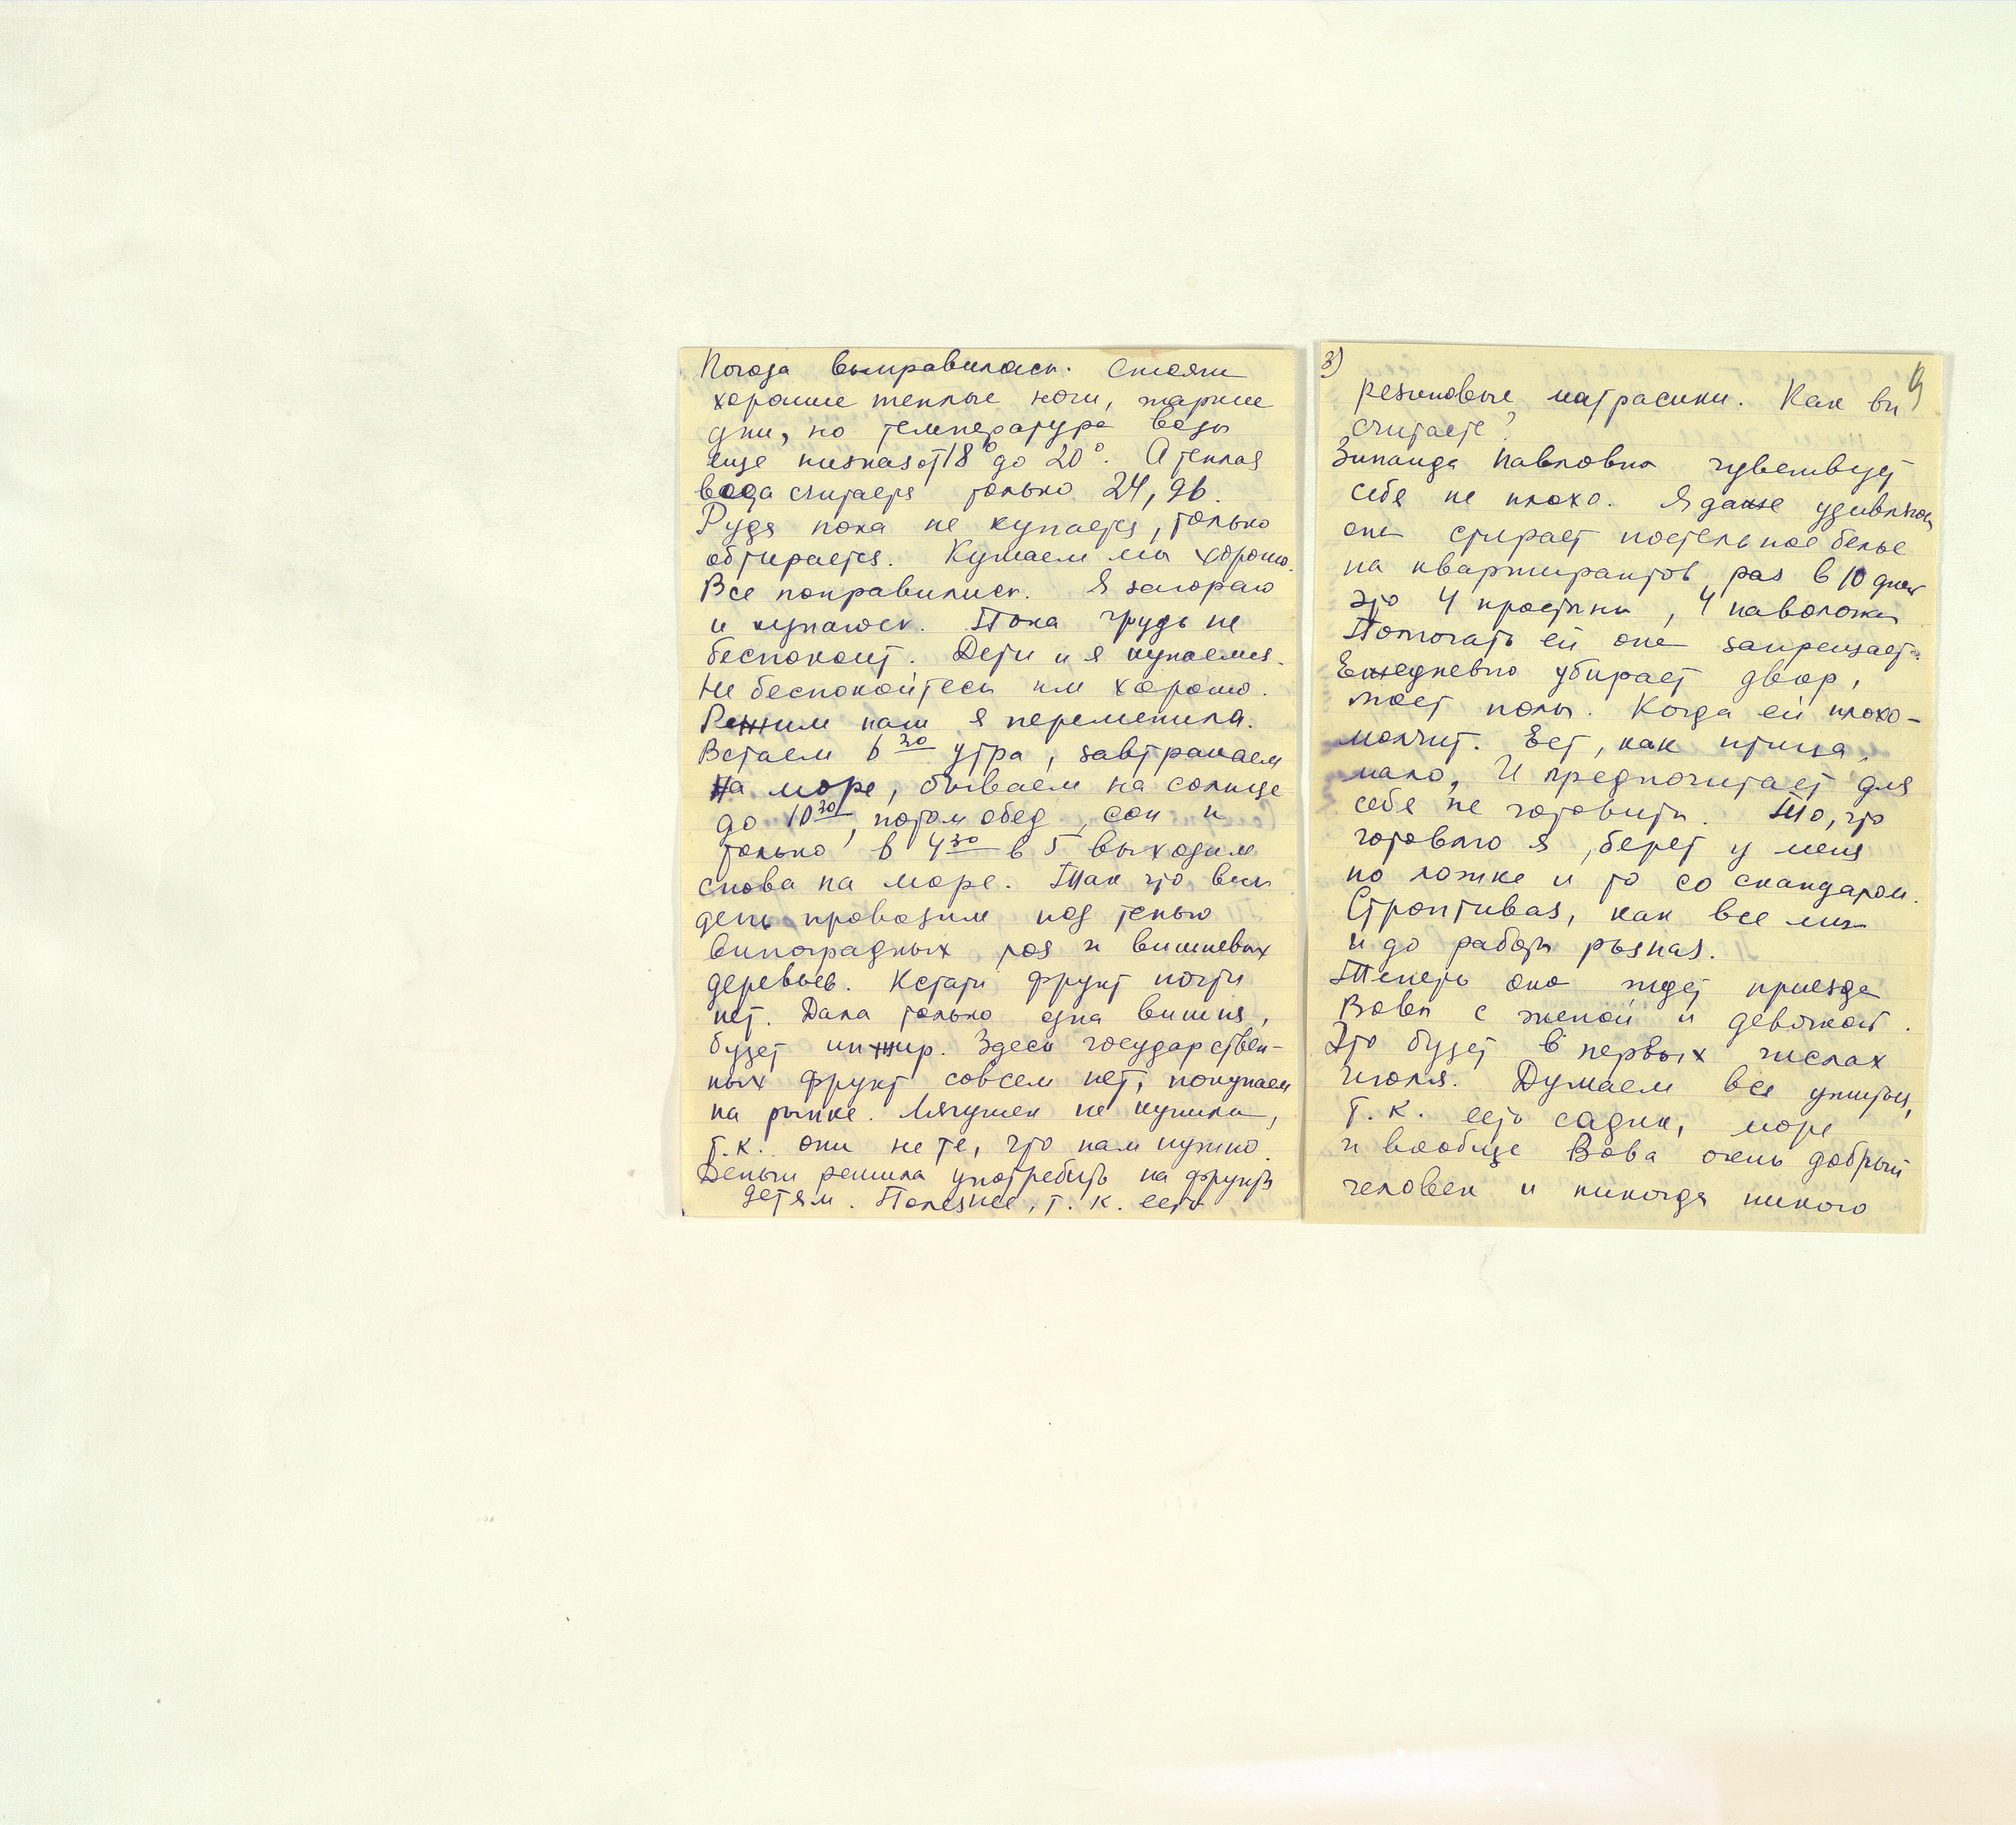 Погода выправилась. Стоят
хорошие теплые ночи, жаркие
дни, но температура воды
еще низкая от 18° до 20°. А теплая
вода считается только 24, 26.
Рудя пока не купается, только
обтирается. Кушаем мы хорошо.
Все поправились. Я загораю
и купаюсь. Пока грудь не
беспокоит. Дети и я купаемся.
Не беспокойтесь им хорошо.
Режим наш я переменила.
Встаем 6 30 утра, завтракаем
на море, бываем на солнце
до 10 30, потом обед, сон и
только в 4 30 в 5 выходим
снова на море. Так что весь
день проводим под тенью
виноградных лоз и вишневых
деревьев. Кстати фрукт почти
нет. Дала только одна вишня,
будет инжир. Здесь государствен-
ных фрукт совсем нет, покупаем
на рынке. Лягушек не купила,
т.к. они не те, что нам нужно.
Деньги решила употребить на фрукты
детям. Полезнее, т.к. есть
3)
резиновые матрасики. Как вы
считаете?
Зинаида Павловна чувствует
себя не плохо. Я даже удивляюсь
она стирает постельное белье
на квартирантов раз в 10 дней
это 4 простыни, 4 наволочки
Помогать ей она запрещает.
Ежедневно убирает двор,
моет полы. Когда ей плохо -
молчит. Ест, как птица,
мало, И предпочитает для
себя не готовить. То, что
готовлю я, берет у меня
по ложке и то со скандалом.
Строптивая, как все мы
и до работы рьяная.
Теперь она ждет приезда
Вовы с женой и девочкой.
Это будет в первых числах
июля. Думаем все ужиться,
т.к. есть садик, море
и вообще Вова очень добрый
человек и никогда никого